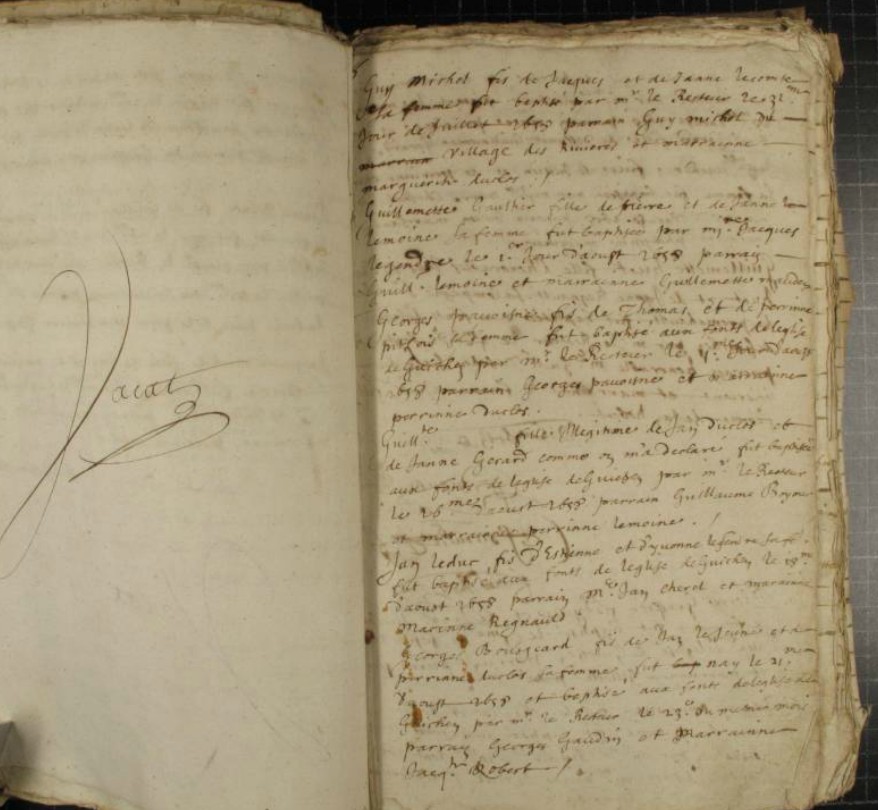 Vacat
Guy Michel fis de Jacques et de Janne lecomte
sa femme fut baptisé par mr le Recteur le 31me
Jour de Juillet 1658 parrain Guy michel du
village des Rivieres et marrainne
marguerite duclos
Guillemette Gaultier fille de pierre et de Janne
lemoine sa femme fut baptisée par mre Jacques
le 1er Jour d'aoust 1658 parrain
Guill. lemoine et marrainne Guillemette
Georges pauoisne fis de Thomas et de perrinne
sa femme fut baptisé aux fonts de leglise
de Guichen par mr le Recteur le Jour d'aoust
1658 parrain Georges pauoisne et marrainne
perrinne Duclos.
Guill.te fille Illegitime de Jan Duclos et
de Janne Gerard comme on m'a declaré fut baptisée
aux fonts de leglise de Guichen par mr le Recteur
le 26me aoust 1658 parrain Guillaume
et marrainne perrinne lemoine.
Jan leduc fis d'Estienne et d'yuonne sa fe
fut baptisé aux fonts de leglise de Guichen le
d'aoust 1658 parrain mre Jan cherel et marainne
Marinne Regnauld
Georges fis de Jan le Jeune et de
perrinne duclos sa femme fut nay le 21me
d'aoust 1658 et baptisé aux fonts de leglise de
Guichen par mr le Recteur le 23e du mesme mois
parrain Georges Gaudin et Marrainne
Jacq. Robert